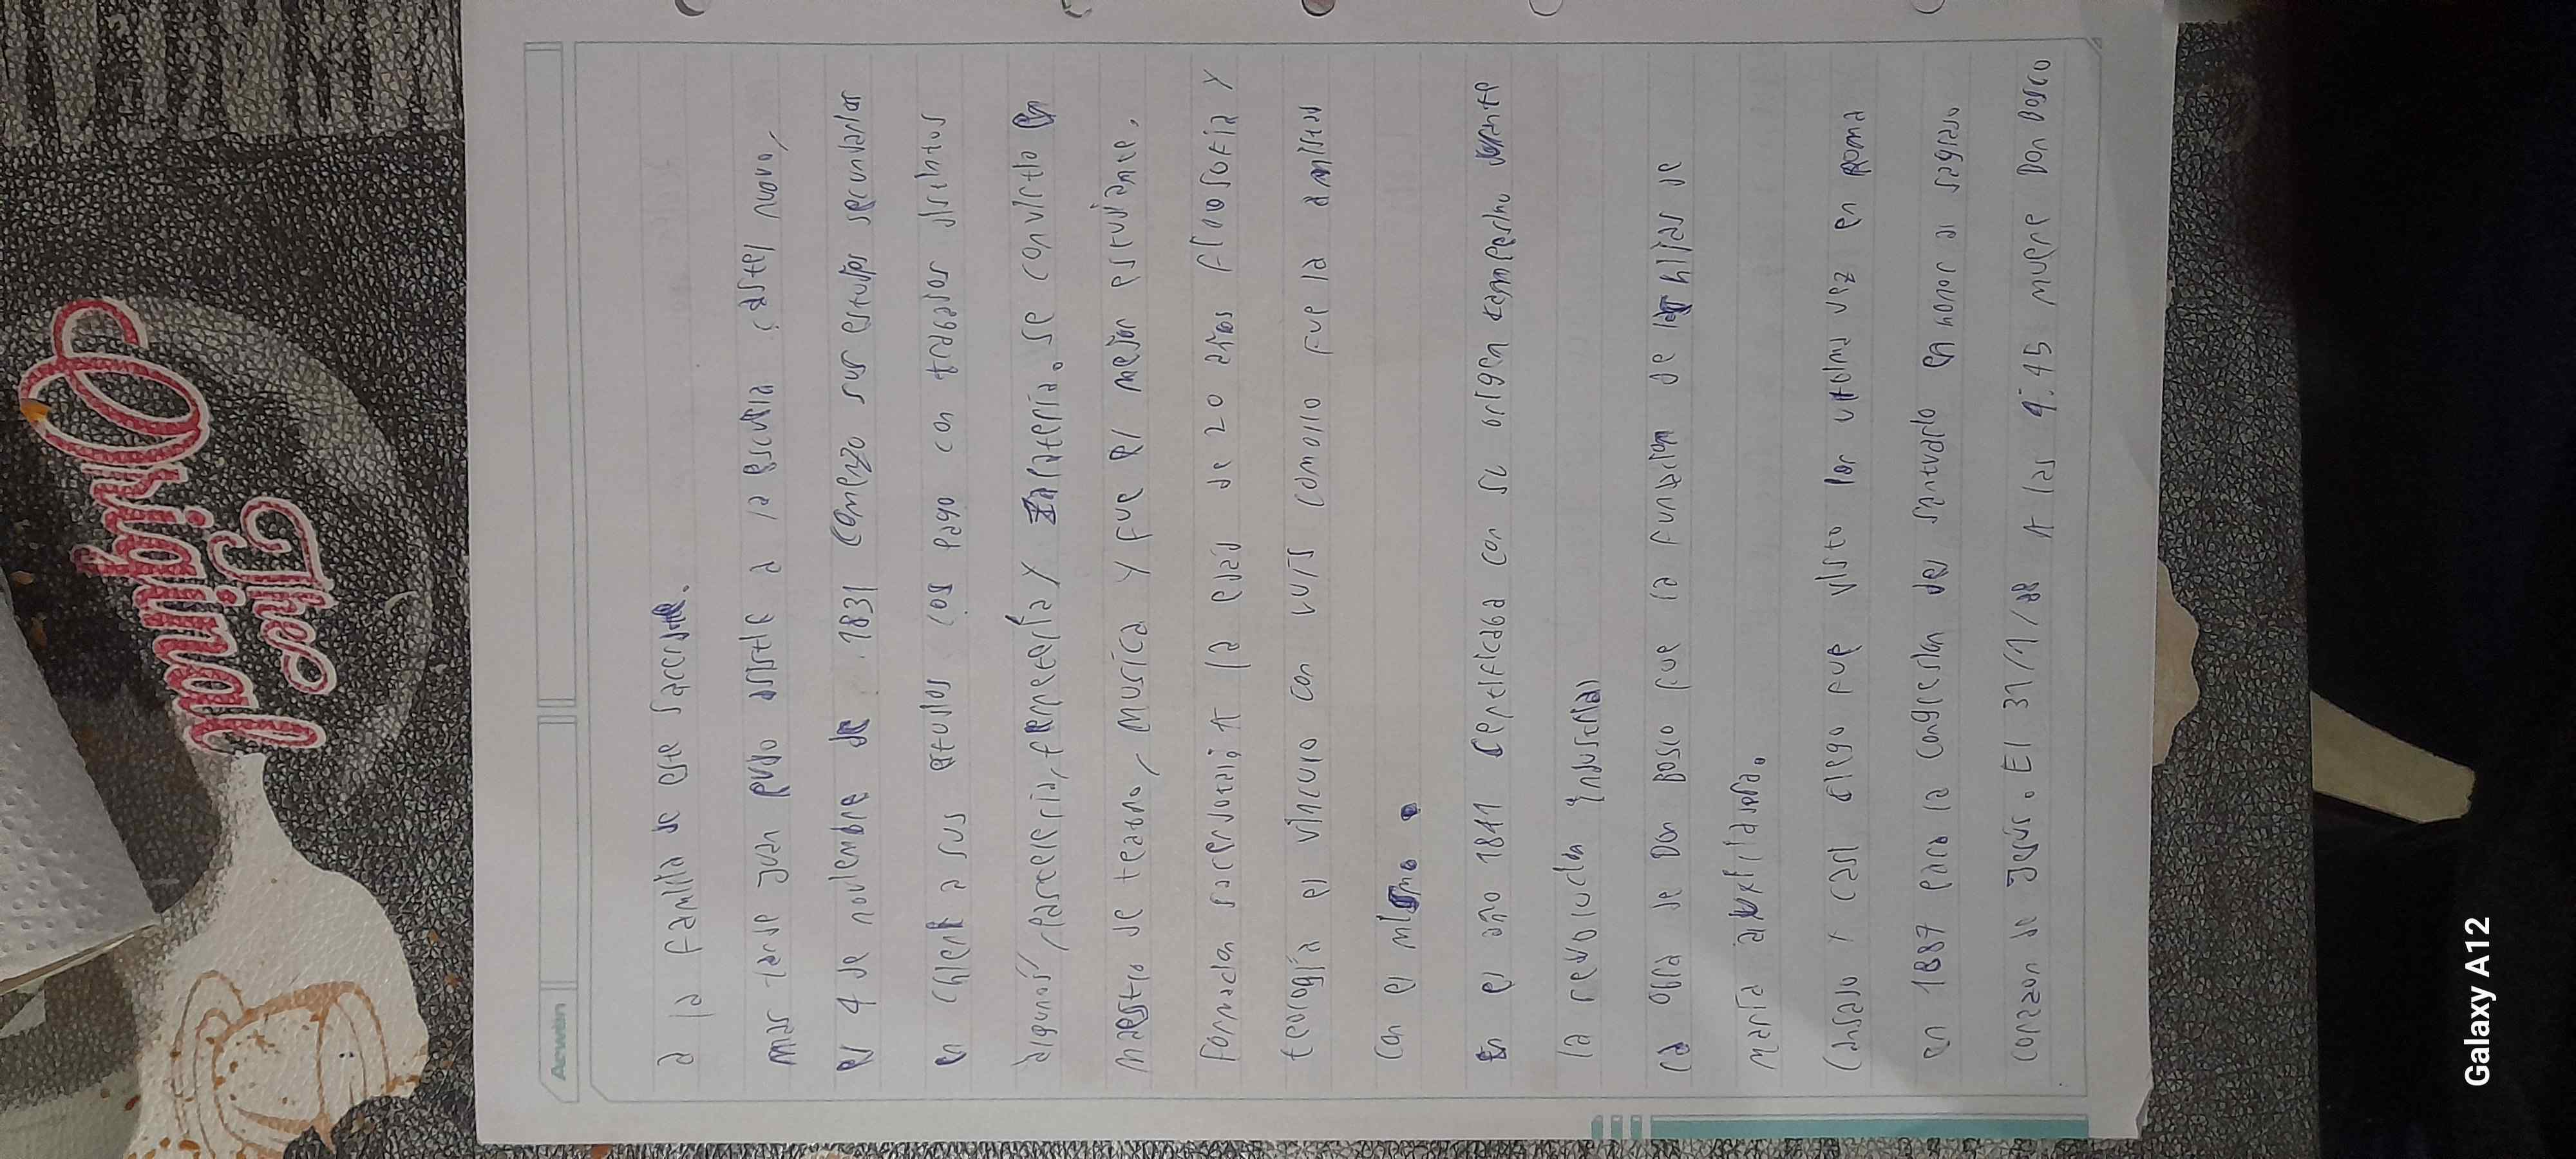 The
Original
Acwen
a la familia de este sacerdote.
mas tarde Juan pudo asistir a la escuela castel nuovo,
el 4 de noviembre de 1831 comenzo sus estudios secundarios
en Chieri a sus estudios los pago con trabajos distintos
algunos, pasteleria, y se convirtio en
maestro de teatro, musica y fue el mejor estudiante.
formacion sacerdotal; A la edad de 20 años filosofia y
teologia el vinculo con Luis comollo fue la amistad
con el mismo.
En el año 1841 certificaba con su origen campesino durante
la revolucion industrial
La obra de Don Bosco fue la fundacion de las hijas de
maria auxiliadora.
Cansado y casi ciego fue visto por ultima vez en Roma
en 1887 para la del santuario en honor al sagrado
corazon de Jesús. El 31/1/88 A las 4:45 muere Don Bosco
Galaxy A12